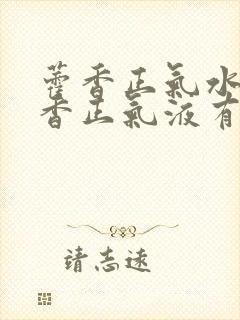 藿香正氣水
香正氣液有
靖志遠